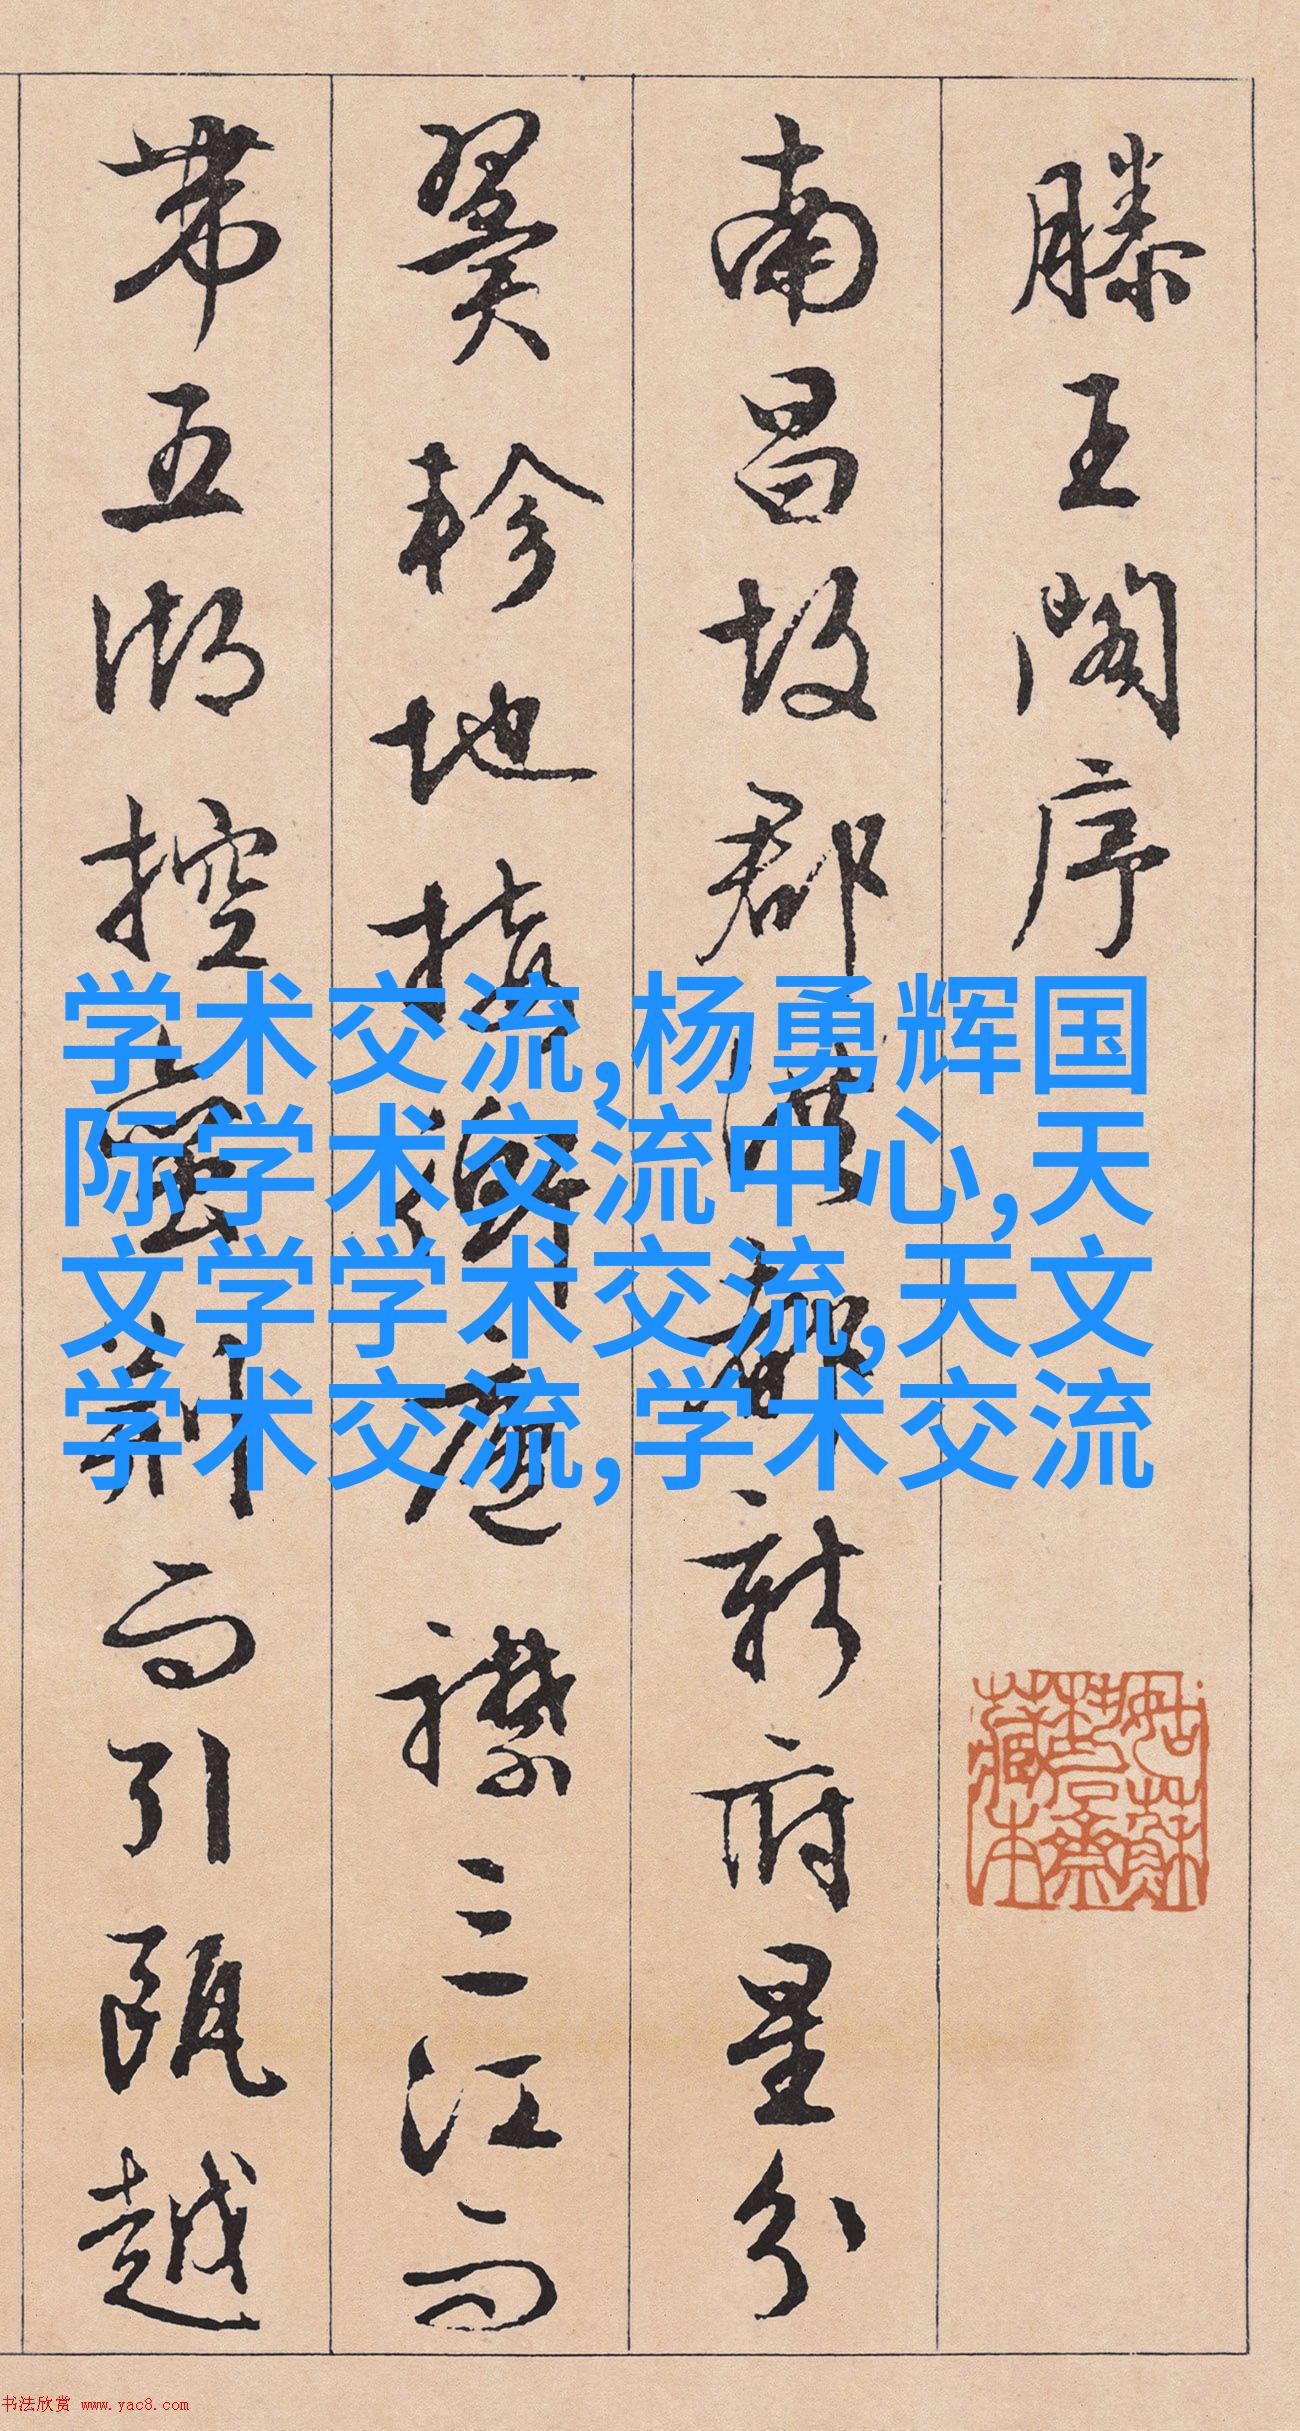 滕王阁序
南昌故郡洪都新府星分
翼轸地接衡庐襟三江而
带五湖控蛮荆而引瓯越
学术交流,杨勇辉国
际学术交流中心,天
文学学术交流,天文
学术交流,学术交流
姑蘇
石齋
藏本
书法欣赏 www.yac8.com